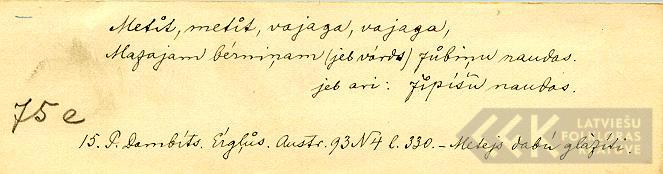 Metit, metit, vajaga, vajaga,
Mazajam bērniņam (jeb vārds) jūbiņu naudas.
jeb ari: jipīšu naudas.
75e
15. P. Dambīts. Ērgļus. Austr. 93 N4 l. 330. – Metejs dabū glāzīti.
LATVIEŠU
FOLKLORAS
KRĀTUVE